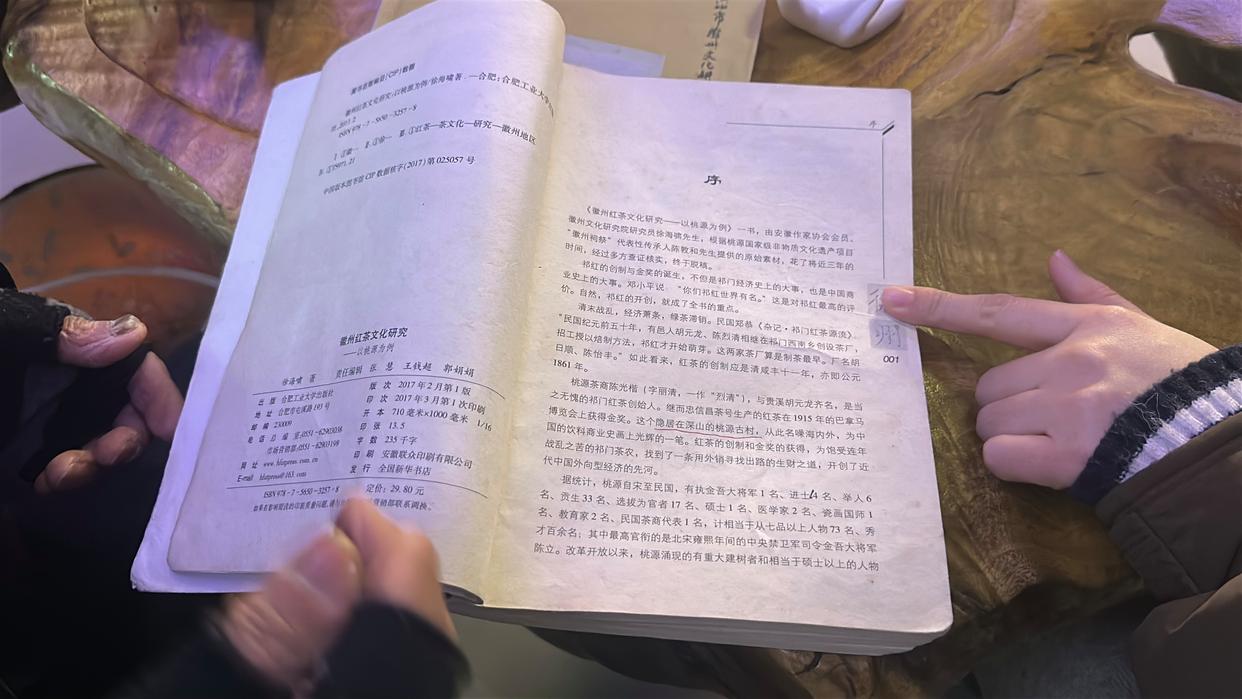 市徽州文化研
图书在版编目(CIP)数据
徽州红茶文化研究:以桃源为例/徐海啸著.—合肥:合肥工业大学
2017.2
ISBN 978-7-5650-3257-8
Ⅰ.①徽… Ⅱ.①徐… Ⅲ.①红茶—茶文化—研究—徽州地区
Ⅳ.①TS971.21
中国版本图书馆 CIP 数据核字(2017)第 025057 号
徽州红茶文化研究
——以桃源为例
徐海啸 著
责任编辑 张 慧 王钱超 郭娟娟
出 版 合肥工业大学出版社
地 址 合肥市屯溪路 193 号
邮 编 230009
电 话 总 编 室:0551-62903038
市场营销部:0551-62903198
网 址 www.hfutpress.com.cn
E-mail hfutpress@163.com
版 次 2017 年 2 月第 1 版
印 次 2017 年 3 月第 1 次印刷
开 本 710 毫米×1000 毫米 1/16
印 张 13.5
字 数 235 千字
印 刷 安徽联众印刷有限公司
发 行 全国新华书店
ISBN 978-7-5650-3257-8
定价:29.80 元
如果有影响阅读的印装质量问题,请与出版社市场营销部联系调换。
序
序
《徽州红茶文化研究——以桃源为例》一书,由安徽作家协会会员、
徽州文化研究院研究员徐海啸先生,根据桃源国家级非物质文化遗产项目
“徽州祠祭”代表性传承人陈敦和先生提供的原始素材,花了将近三年的
时间,经过多方查证核实,终于脱稿。
祁红的创制与金奖的诞生,不但是祁门经济史上的大事,也是中国商
业史上的大事。邓小平说:“你们祁红世界有名。”这是对祁红最高的评
价。自然,祁红的开创,就成了全书的重点。
清末战乱,经济萧条,绿茶滞销。民国郑恭《杂记·祁门红茶源流》:
“民国纪元前五十年,有邑人胡元龙、陈烈清相继在祁门西南乡创设茶厂,
招工授以焙制方法,祁红才开始萌芽。这两家茶厂算是制茶最早。厂名胡
日顺、陈怡丰。”如此看来,红茶的创制应是清咸丰十一年,亦即公元
1861 年。
桃源茶商陈光楷(字丽清,一作“烈清”),与贵溪胡元龙齐名,是当
之无愧的祁门红茶创始人。继而忠信昌茶号生产的红茶在 1915 年的巴拿马
博览会上获得金奖。这个隐居在深山的桃源古村,从此名噪海内外,为中
国的饮料商业史画上光辉的一笔。红茶的创制和金奖的获得,为饱受连年
战乱之苦的祁门茶农,找到了一条用外销寻找出路的生财之道,开创了近
代中国外向型经济的先河。
据统计,桃源自宋至民国,有执金吾大将军 1 名、进士4 名、举人 6
名、贡生 33 名、选拔为官者 17 名、硕士 1 名、医学家 2 名、瓷画国师 1
名、教育家 2 名、民国茶商代表 1 名,计相当于从七品以上人物 73 名、秀
才百余名;其中最高官衔的是北宋雍熙年间的中央禁卫军司令金吾大将军
陈立。改革开放以来,桃源涌现的有重大建树者和相当于硕士以上的人物
州
001